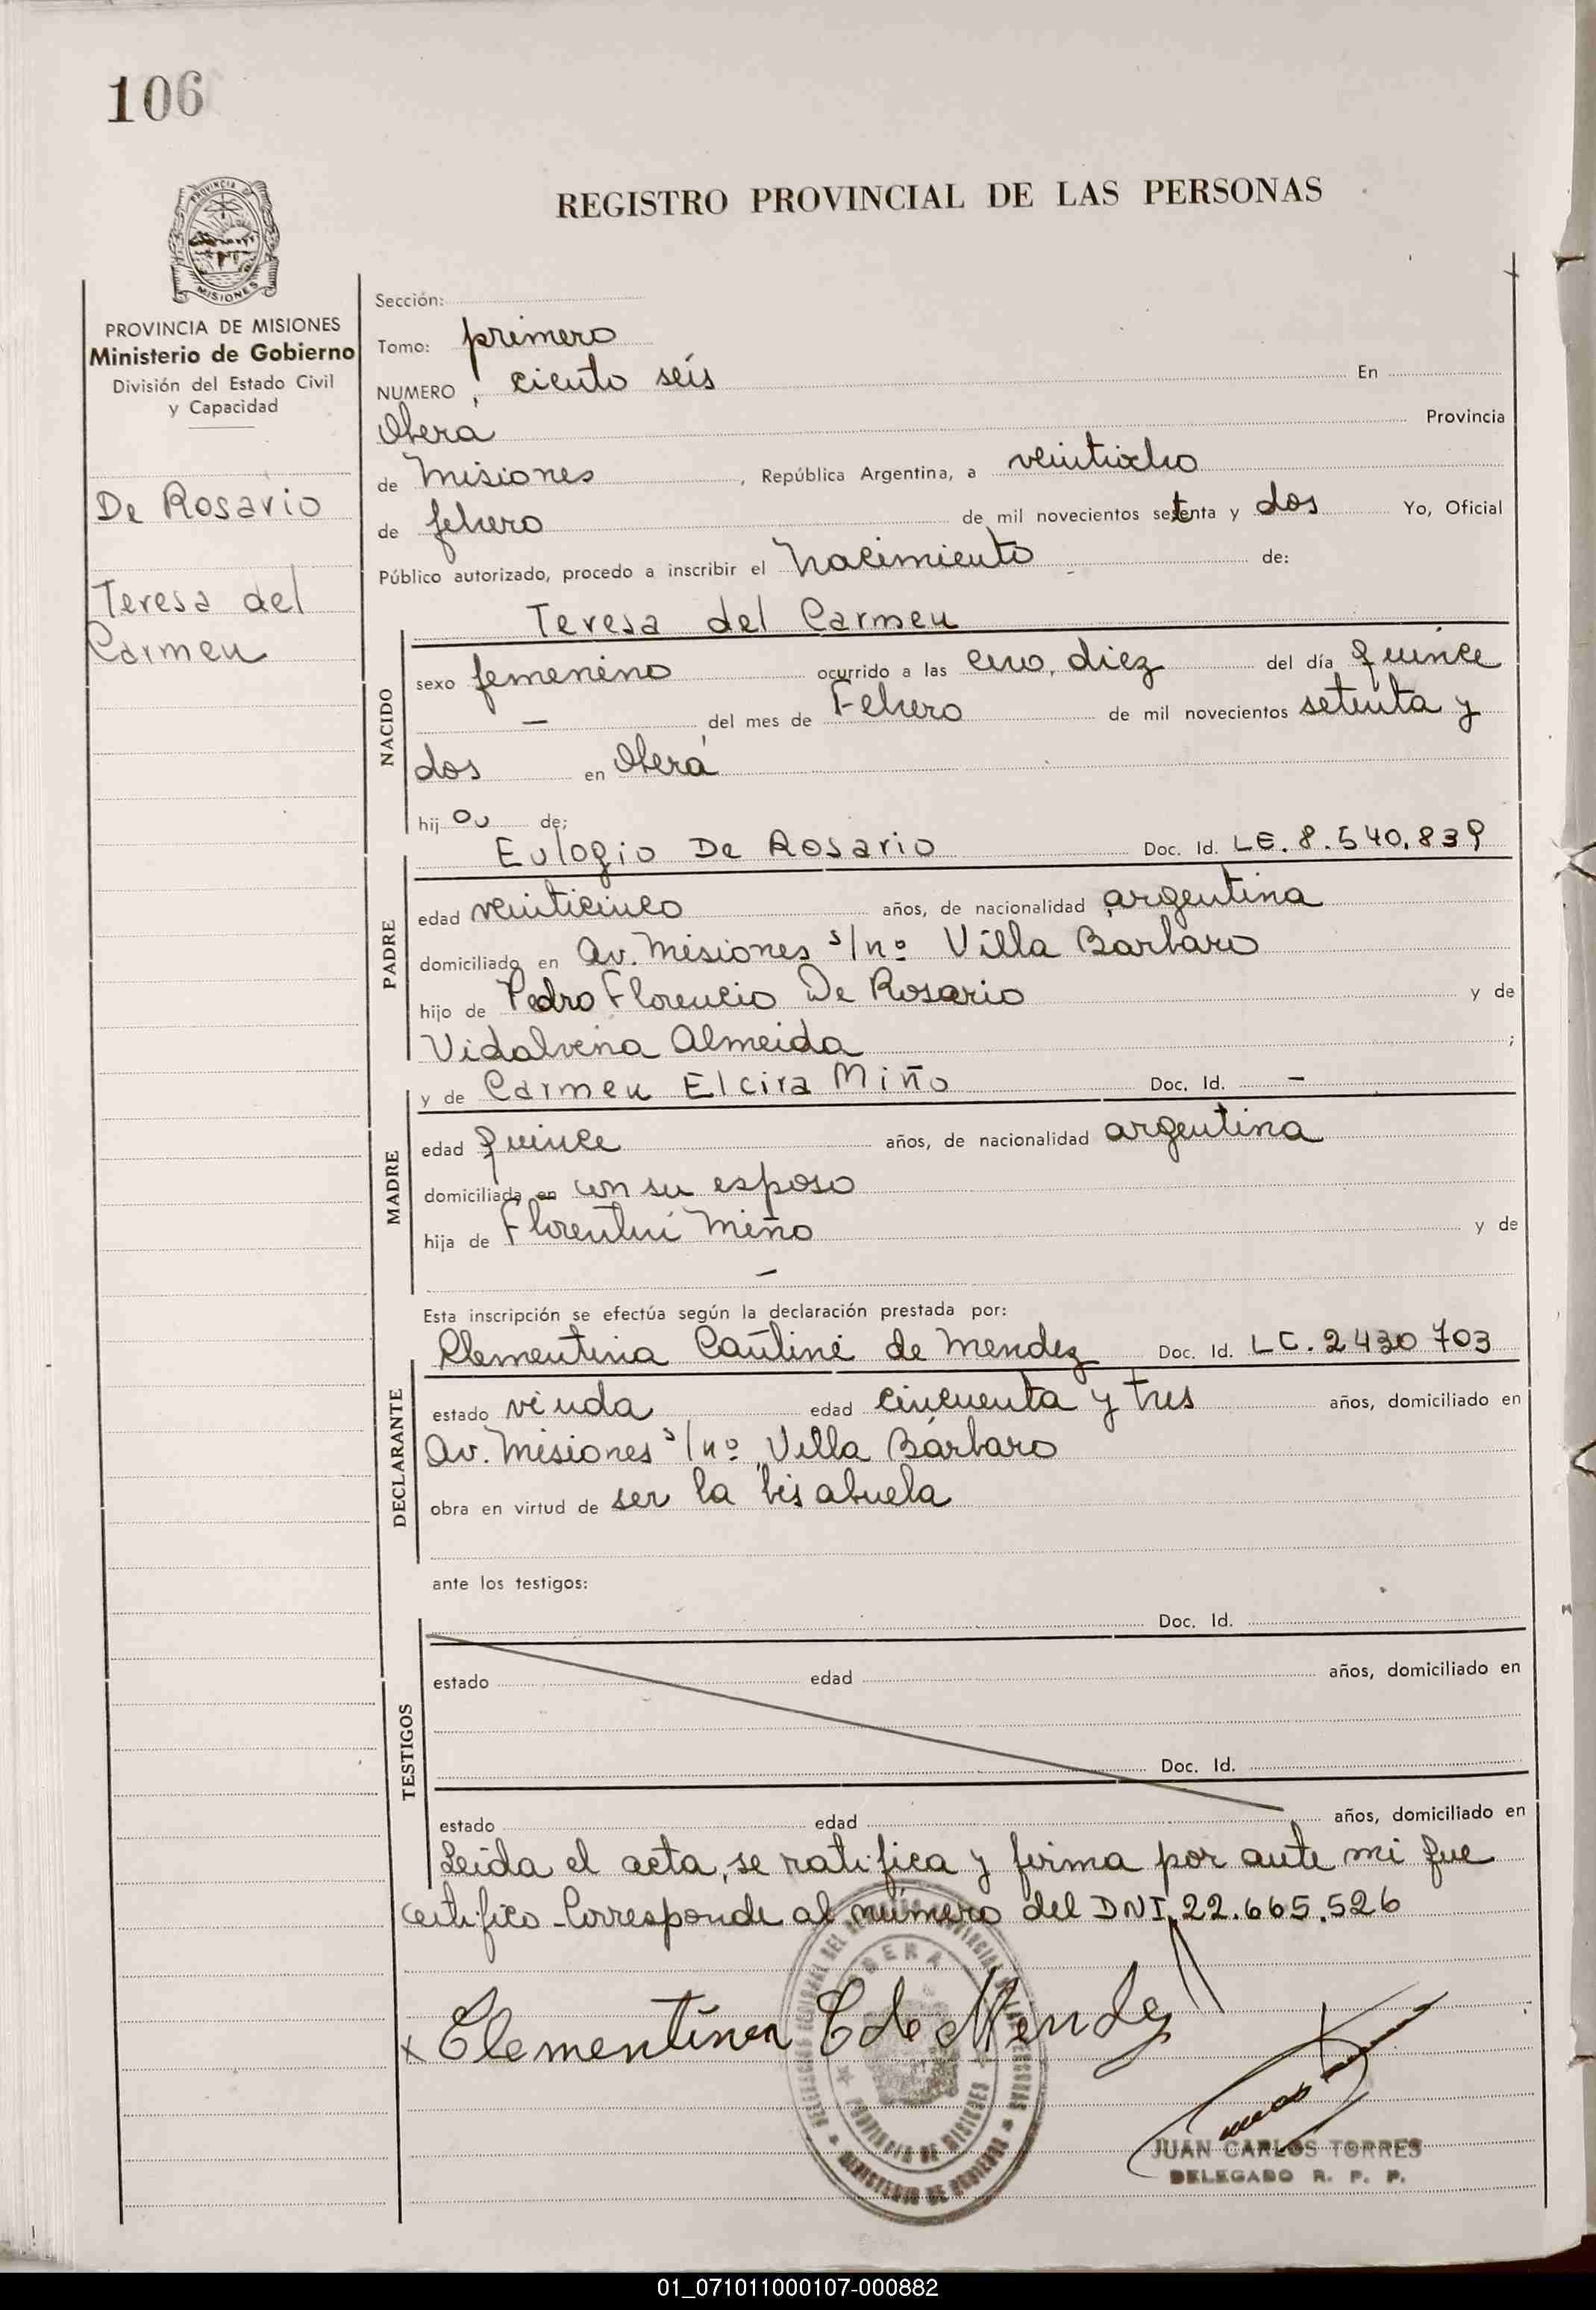 106
PROVINCIA DE
MISIONES
REGISTRO PROVINCIAL DE LAS PERSONAS
PROVINCIA DE MISIONES
Ministerio de Gobierno
División del Estado Civil
y Capacidad
De Rosario
Teresa del
Carmen
Sección:
Tomo: primero
NUMERO, ciento seis En
Oberá Provincia
de Misiones, República Argentina, a veintiocho
de febrero de mil novecientos setenta y dos Yo, Oficial
Público autorizado, procedo a inscribir el Nacimiento de:
NACIDO
Teresa del Carmen
sexo femenino ocurrido a las cero, diez del día quince
— del mes de Febrero de mil novecientos setenta y
dos en Oberá
hij de;
PADRE
Eulogio De Rosario Doc. Id. LE. 8.540.839
edad veinticinco años, de nacionalidad argentina
domiciliado en Av. Misiones s/nº Villa Barbaro
hijo de Pedro Florencio De Rosario y de
Vidalvina Almeida ;
MADRE
y de Carmen Elcira Miño Doc. Id. —
edad quince años, de nacionalidad argentina
domiciliada en con su esposo
hija de Miño y de
—
Esta inscripción se efectúa según la declaración prestada por:
DECLARANTE
Clementina de Mendez Doc. Id. LC. 2430703
estado viuda edad cincuenta y tres años, domiciliado en
Av. Misiones s/nº Villa Bárbaro
obra en virtud de ser la bisabuela
ante los testigos:
TESTIGOS
Doc. Id.
estado edad años, domiciliado en
Doc. Id.
estado edad años, domiciliado en
Leída el acta, se ratifica y firma por ante mi que
certifico - Corresponde al número del DNI. 22.665.526
x Clementina C de Mendez
OBERA
PROVINCIA DE MISIONES
MINISTERIO DE GOBIERNO
JUAN CARLOS TORRES
DELEGADO R. P. P.
01_071011000107-000882